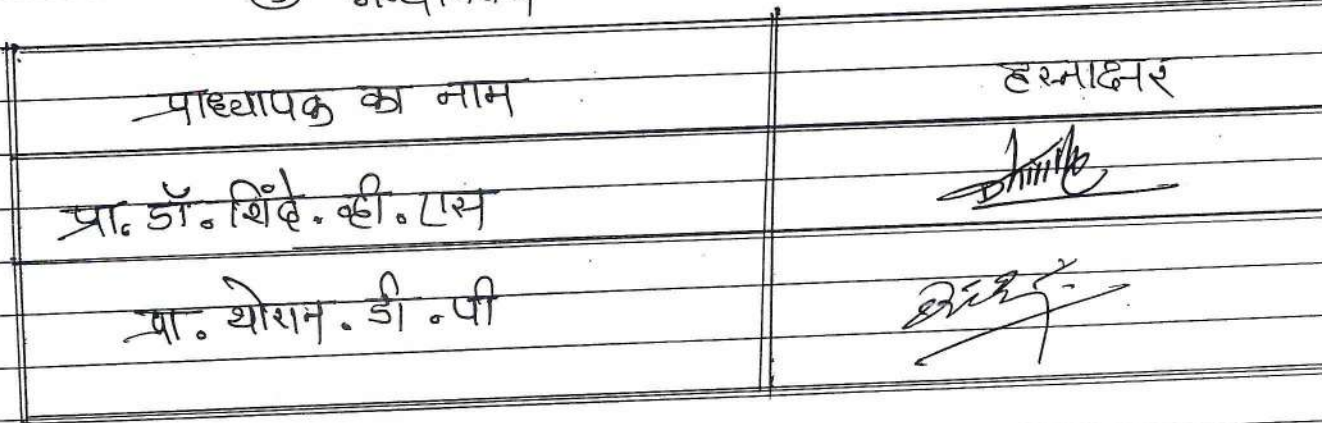 प्राध्यापक का नाम हस्ताक्षर
प्रा. डॉ. शिंदे. व्ही. एस
प्रा. थोरात. डी. पी